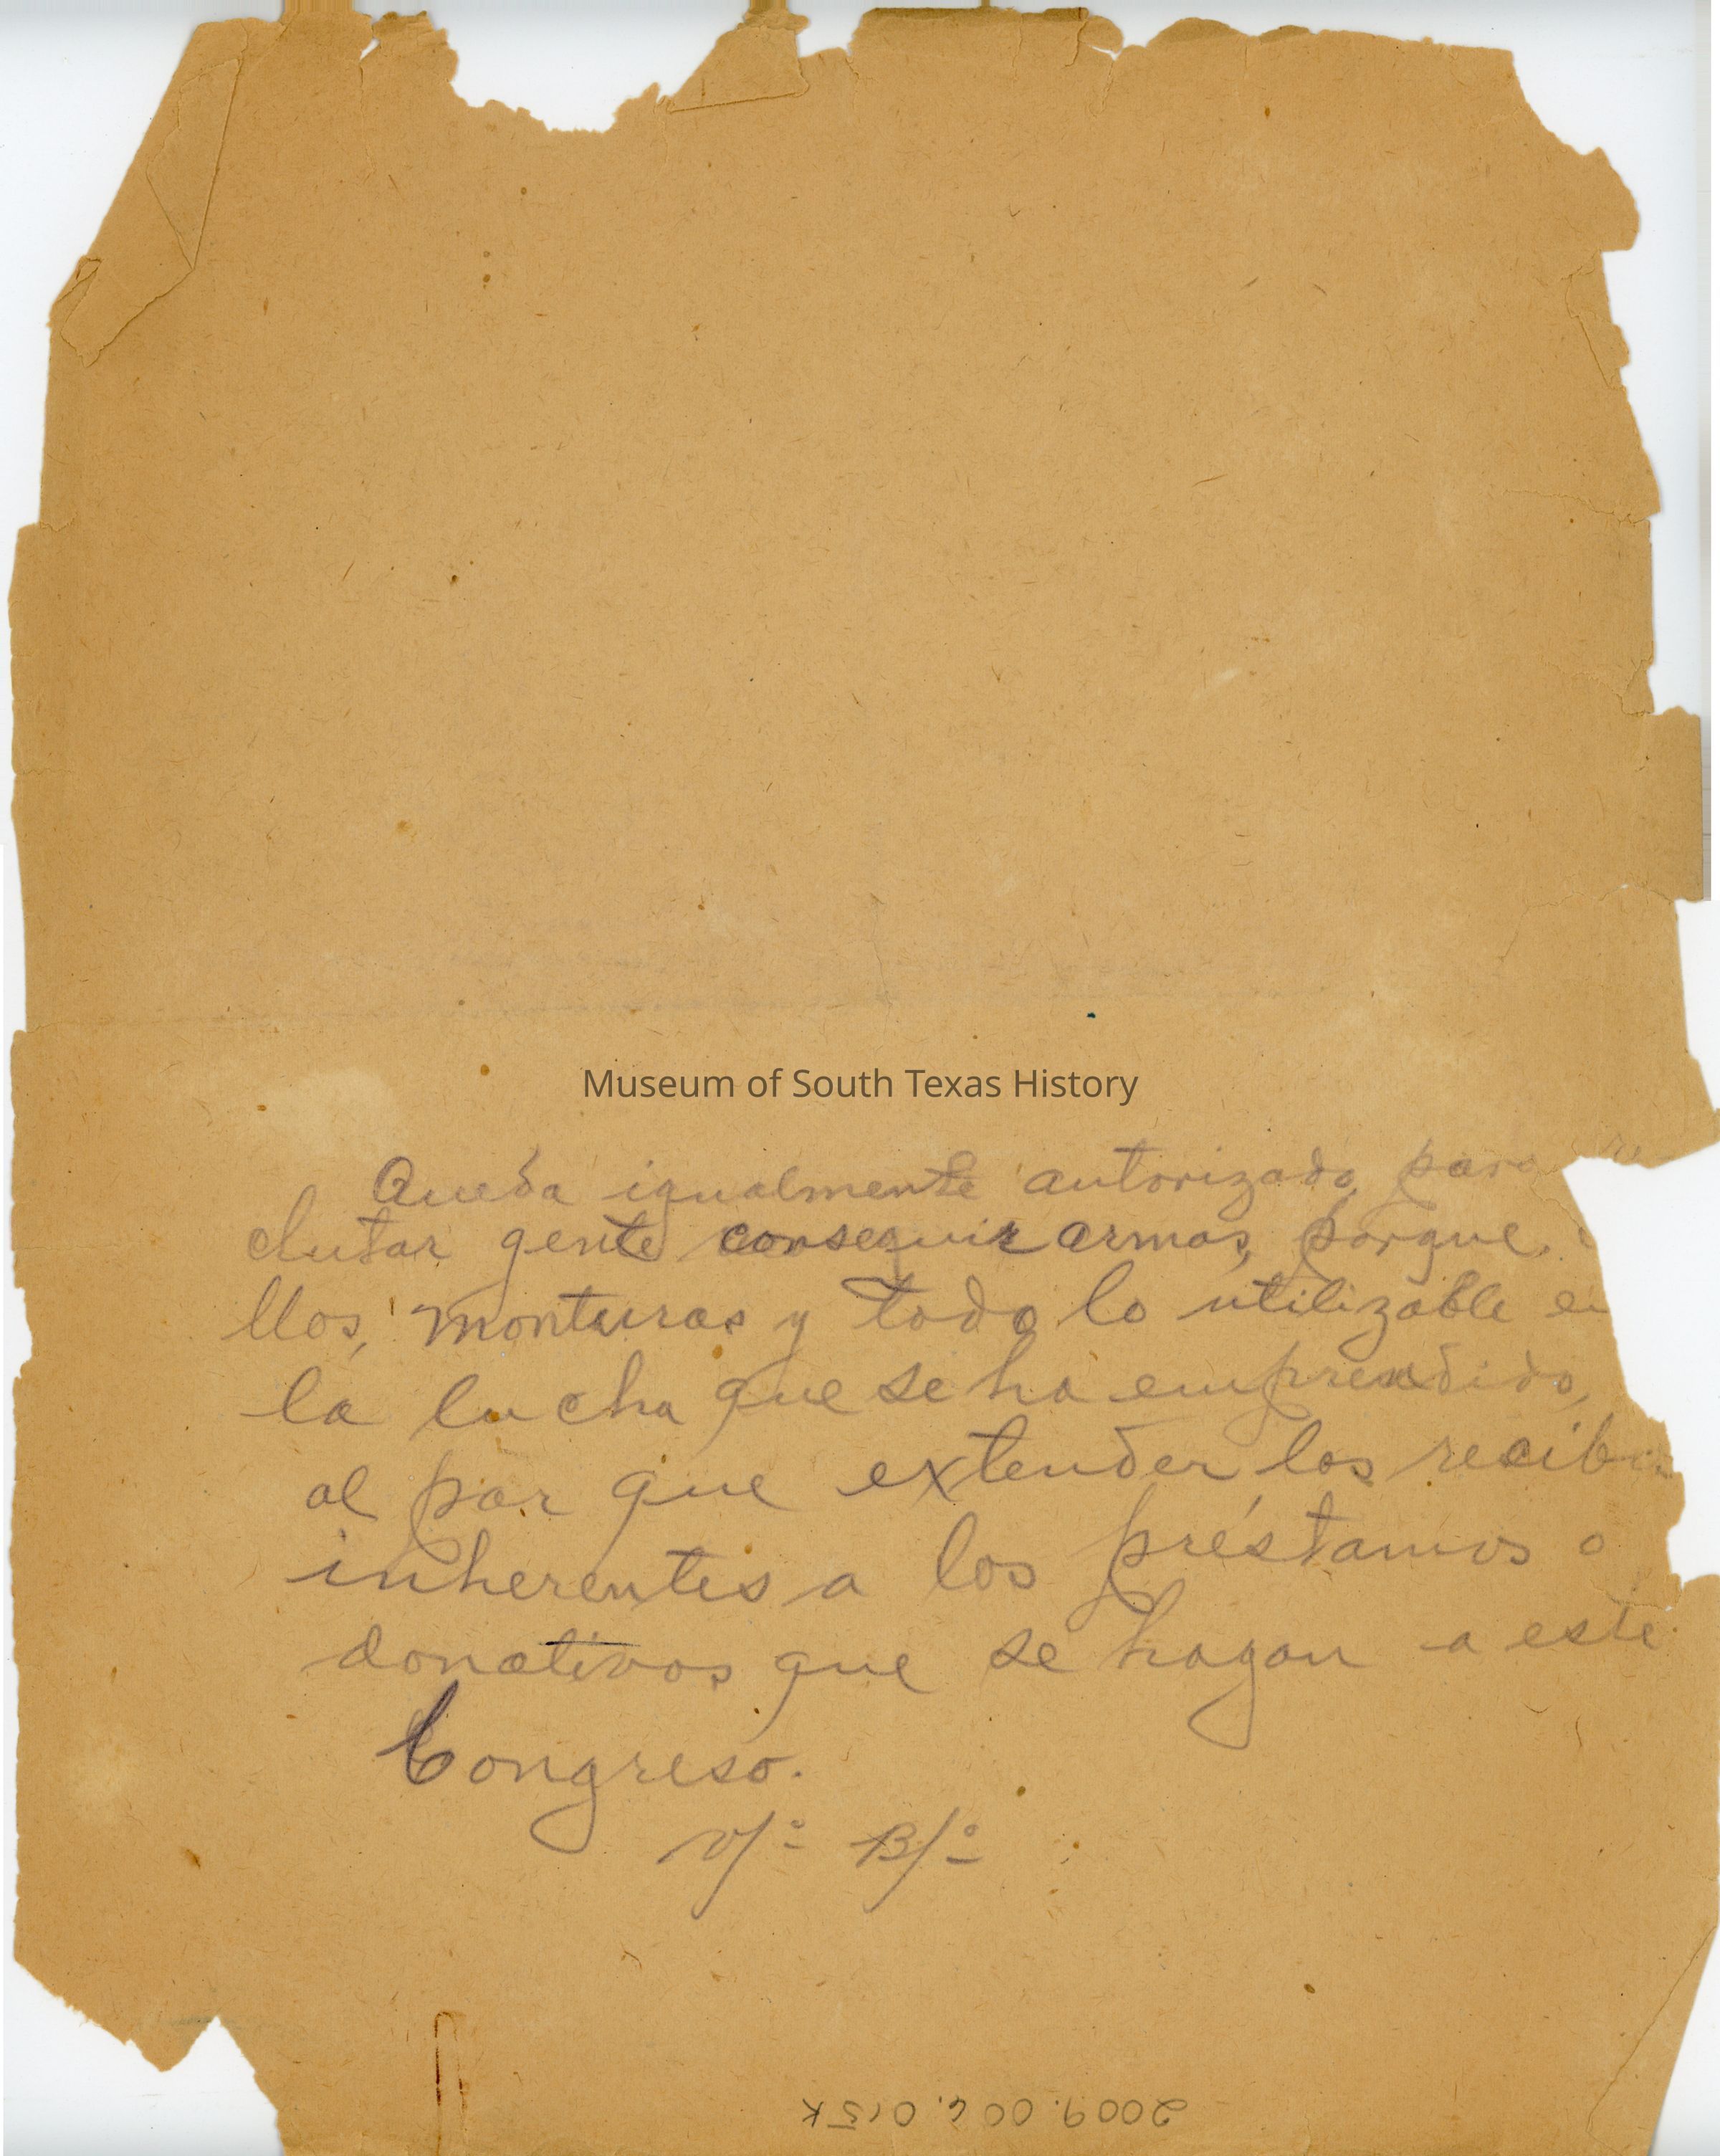 Museum of South Texas History
Queda igualmente autorizado para re
clutar gente conseguir armas, parque,
llos, monturas y todo lo utilizable en
la lucha que se ha emprendido,
al par que extender los recib
inherentes a los préstamos o
donativos que se hagan a este
Congreso.
V/o B/o
2009.006.015K